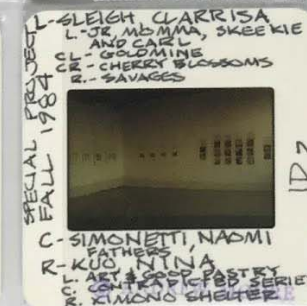 L-SLEIGH, CLARRISA
L.-JR, MOMMA, SKEEKIE
AND CARL
CL-GOLDMINE
CR-CHERRY BLOSSOMS
R.-SAVAGES
SPECIAL PROJECT
FALL 1984
C-SIMONETTI, NAOMI
FATHERS
R-KUO NINA
L. ART & GOOD PASTRY
C. CONTRAPTED SERIE
R. KIMONO SHELTER